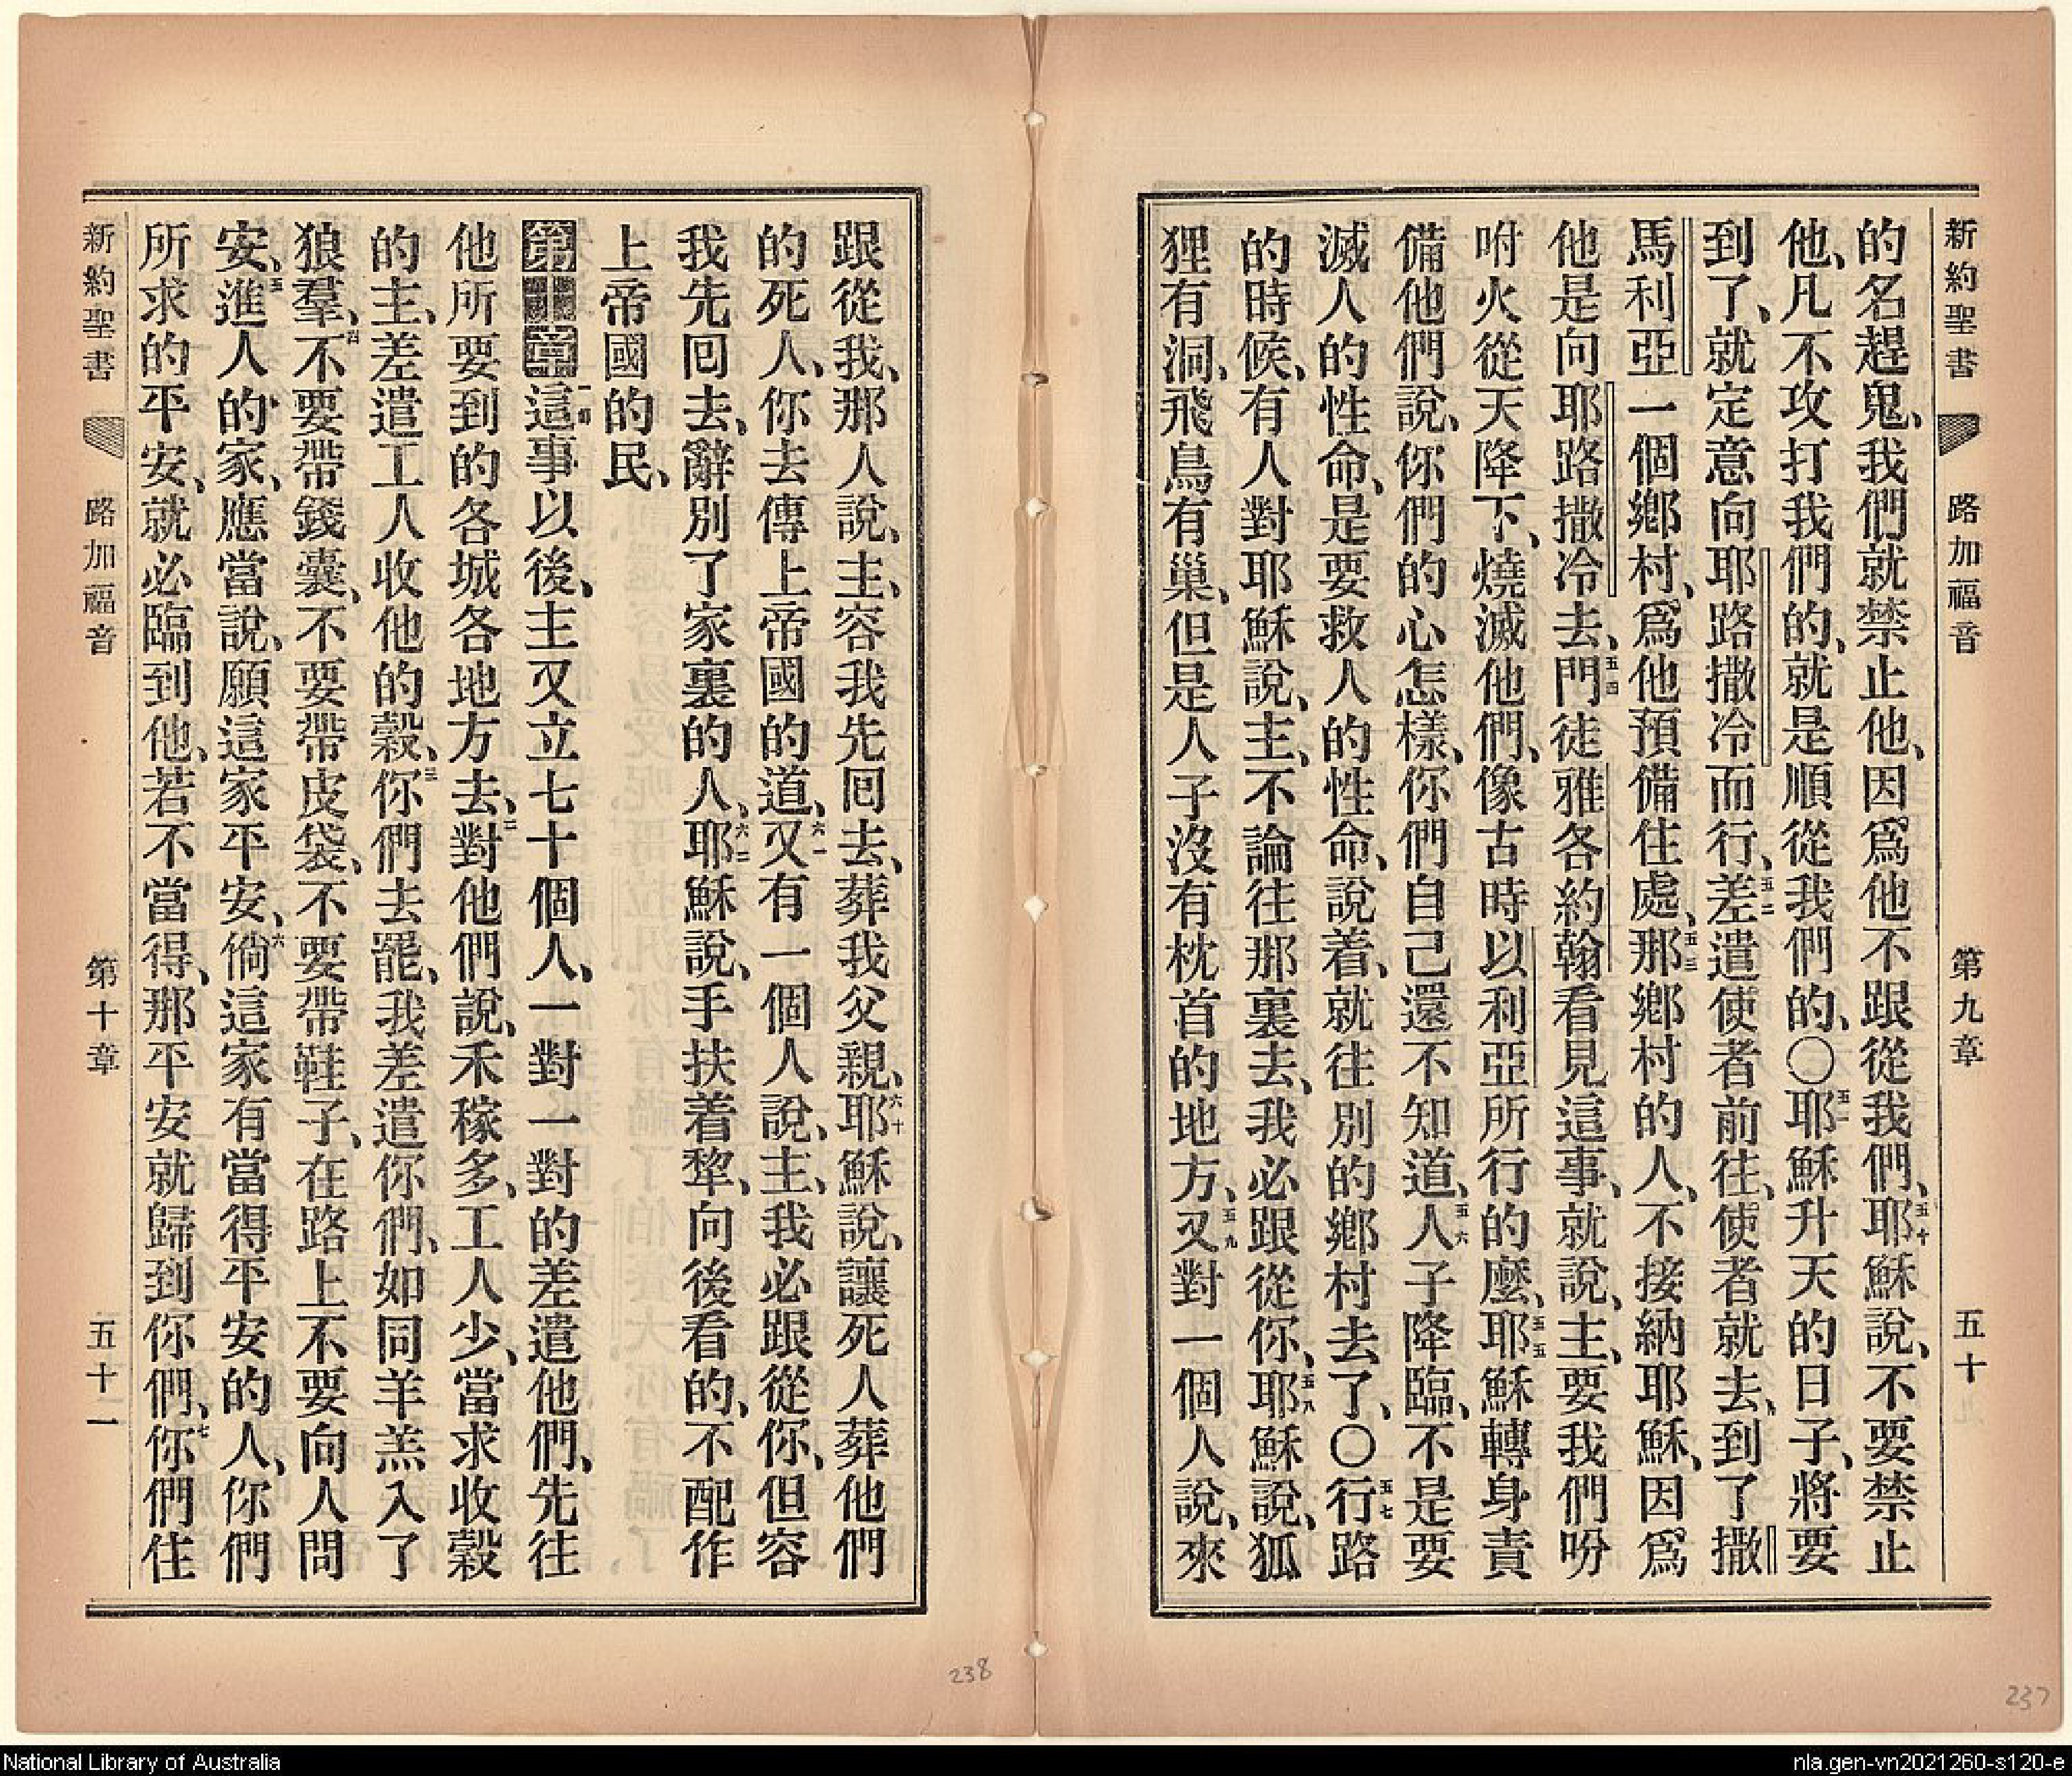 新約聖書 路加福音 第九章 五十
的名趕鬼、我們就禁止他、因爲他不跟從我們、五十耶穌說、不要禁止
他、凡不攻打我們的、就是順從我們的、〇五一耶穌升天的日子、將要
到了、就定意向耶路撒冷而行、五二差遣使者前往、使者就去、到了撒
馬利亞一個鄉村、爲他預備住處、五三那鄉村的人、不接納耶穌、因爲
他是向耶路撒冷去、五四門徒雅各約翰看見這事、就說、主、要我們吩
咐火從天降下、燒滅他們、像古時以利亞所行的麼、五五耶穌轉身責
備他們說、你們的心怎樣、你們自己還不知道、五六人子降臨、不是要
滅人的性命、是要救人的性命、說着、就往別的鄉村去了、〇五七行路
的時候、有人對耶穌說、主、不論往那裏去、我必跟從你、五八耶穌說、狐
狸有洞、飛鳥有巢、但是人子沒有枕首的地方、五九又對一個人說、來
跟從我、那人說、主、容我先回去、葬我父親、六十耶穌說、讓死人葬他們
的死人、你去傳上帝國的道、六一又有一個人說、主、我必跟從你、但容
我先回去、辭別了家裏的人、六二耶穌說、手扶着犂、向後看的、不配作
上帝國的民、
第十章一節這事以後、主又立七十個人、一對一對的差遣他們、先往
他所要到的各城各地方去、二對他們說、禾稼多、工人少、當求收穀
的主、差遣工人收他的穀、三你們去罷、我差遣你們、如同羊羔入了
狼羣、四不要帶錢囊、不要帶皮袋、不要帶鞋子、在路上不要向人問
安、五進人的家、應當說、願這家平安、六倘這家有當得平安的人、你們
所求的平安、就必臨到他、若不當得、那平安就歸到你們、七你們住
新約聖書 路加福音 第十章 五十一
238
237
National Library of Australia
nla.gen-vn2021260-s120-e